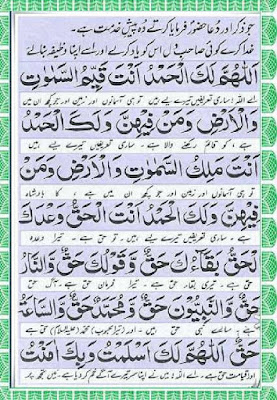 جو ذکر اور دُعا حضور فرمایا کرتے وُہ پیشِ خدمت ہے۔
خدا کرے کوئی صاحبِ دل اس کو یاد کرے اور اسے اپنا وظیفہ بنائے
اَللّٰهُمَّ لَكَ الْحَمْدُ اَنْتَ قَيِّمُ السَّمٰوٰتِ
اے اللہ! ساری تعریفیں تیرے لیے ہیں تو ہی آسمانوں اور زمین اور جو کچھ ان میں
وَالْاَرْضِ وَمَنْ فِيْهِنَّ وَلَكَ الْحَمْدُ
ہے، قائم رکھنے والا ہے۔ ساری تعریفیں تیرے لیے ہیں
اَنْتَ مَلِكُ السَّمٰوٰتِ وَالْاَرْضِ وَمَنْ
تو ہی آسمانوں اور زمین اور جو کچھ ان میں ہے، کا بادشاہ
فِيْهِنَّ وَلَكَ الْحَمْدُ اَنْتَ الْحَقُّ وَوَعْدُكَ
ہے۔ ساری تعریفیں تیرے لیے ہیں۔ تو حق ہے۔ تیرا وعدہ
الْحَقُّ لِقَاءُكَ حَقٌّ وَقَوْلُكَ حَقٌّ وَّالنَّارُ
حق ہے۔ تیری لقاء حق ہے۔ تیرا فرمان حق ہے۔ آگ حق
حَقٌّ وَّالنَّبِيُّوْنَ حَقٌّ وَّمُحَمَّدٌ حَقٌّ وَّالسَّاعَةُ
ہے۔ سارے نبی حق ہیں۔ اور محمد حق ہے
حَقٌّ اَللّٰهُمَّ لَكَ اَسْلَمْتُ وَبِكَ اٰمَنْتُ
اور قیامت حق ہے۔ اے اللہ! میں نے اپنا سر تیرے آگے خم کر دیا ہے۔ میں تجھ پر